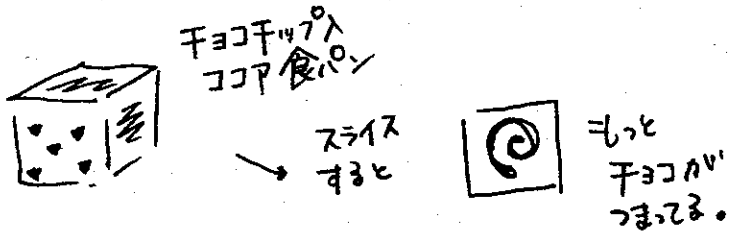 チョコチップ入
ココア食パン
スライス
すると
もっと
チョコが
つまってる。